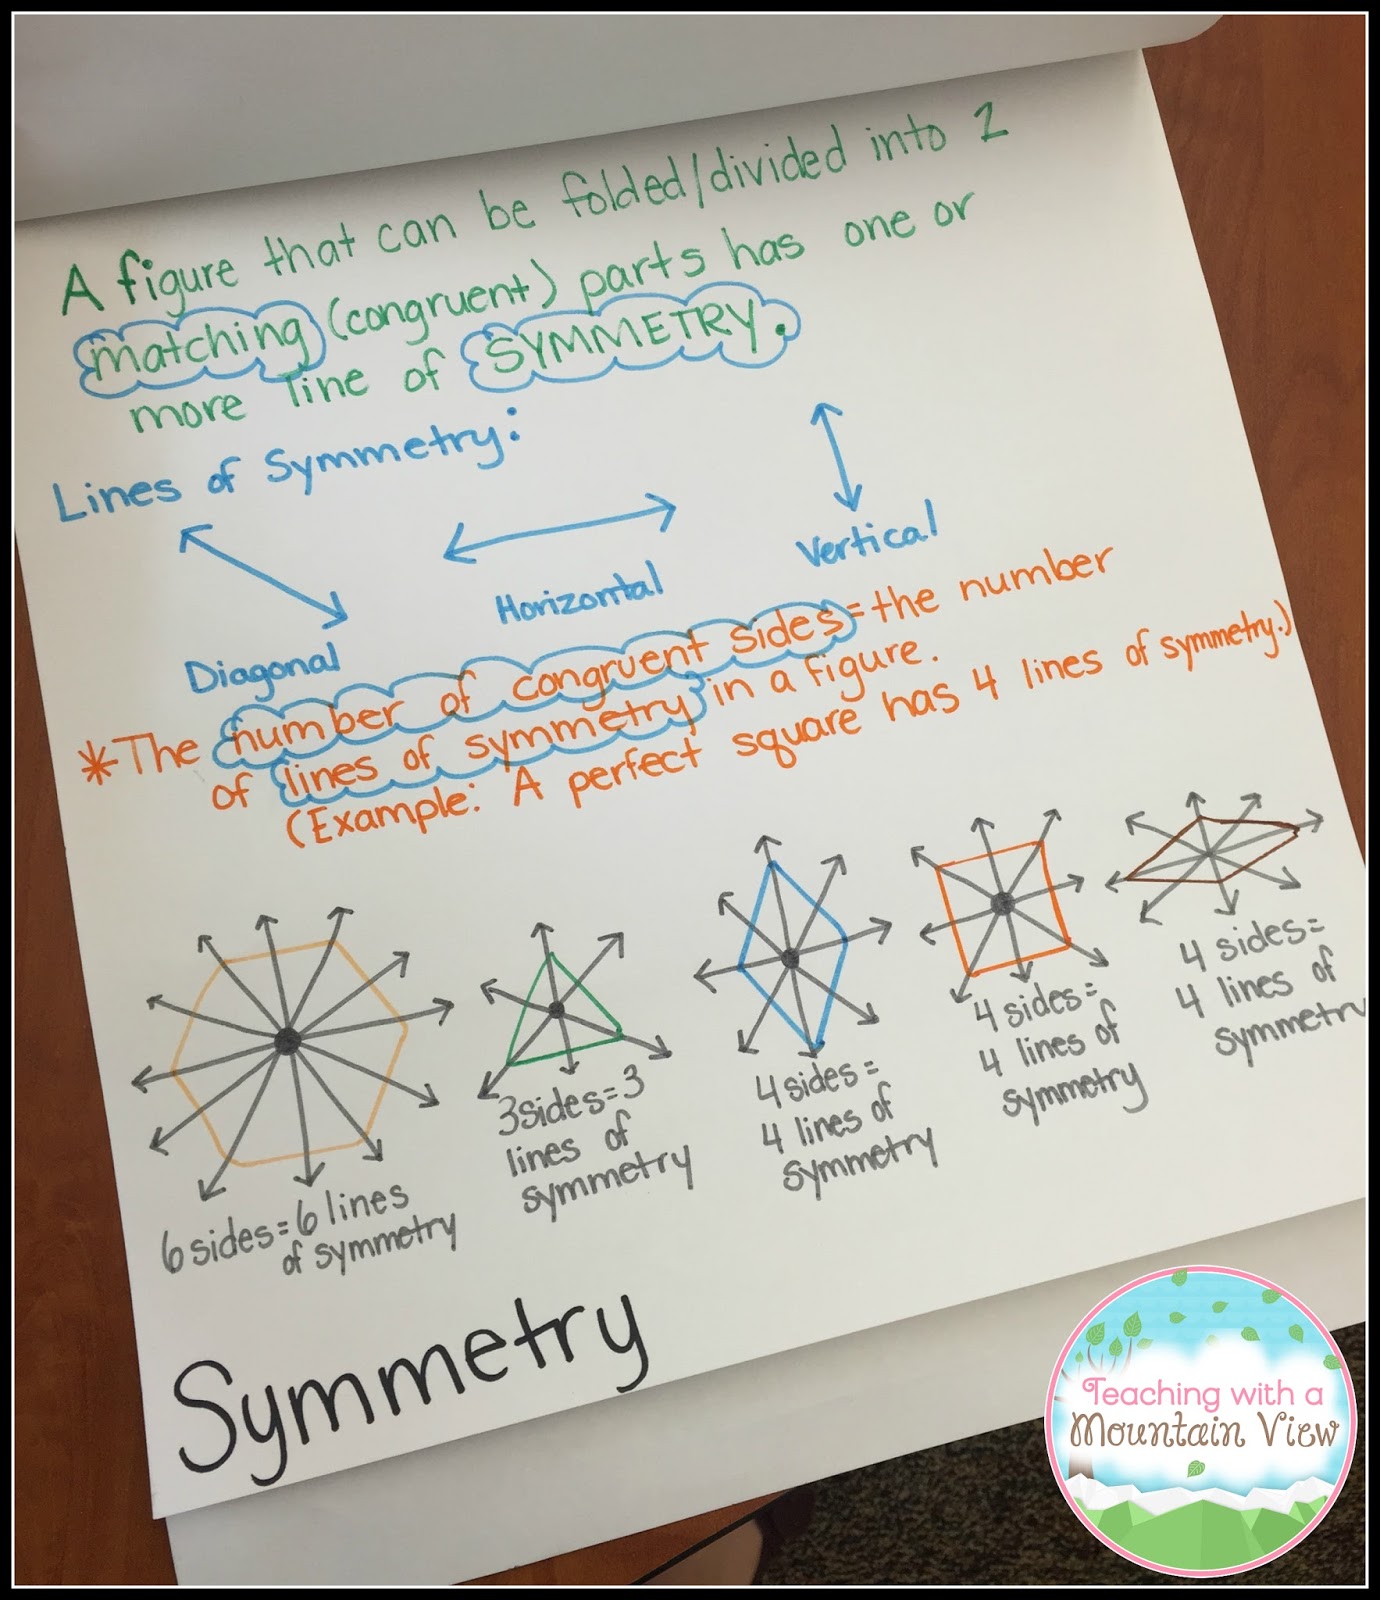 A figure that can be folded/divided into 2
matching (congruent) parts has one or
more line of SYMMETRY.
Lines of Symmetry:
Diagonal
Horizontal
Vertical
*The number of congruent sides=the number
of lines of symmetry in a figure.
(Example: A perfect square has 4 lines of symmetry.)
6 sides=6 lines
of symmetry
3 sides=3
lines of
symmetry
4 sides=
4 lines of
symmetry
4 sides=
4 lines of
symmetry
4 sides=
4 lines of
symmetry
Symmetry
Teaching with a
Mountain View